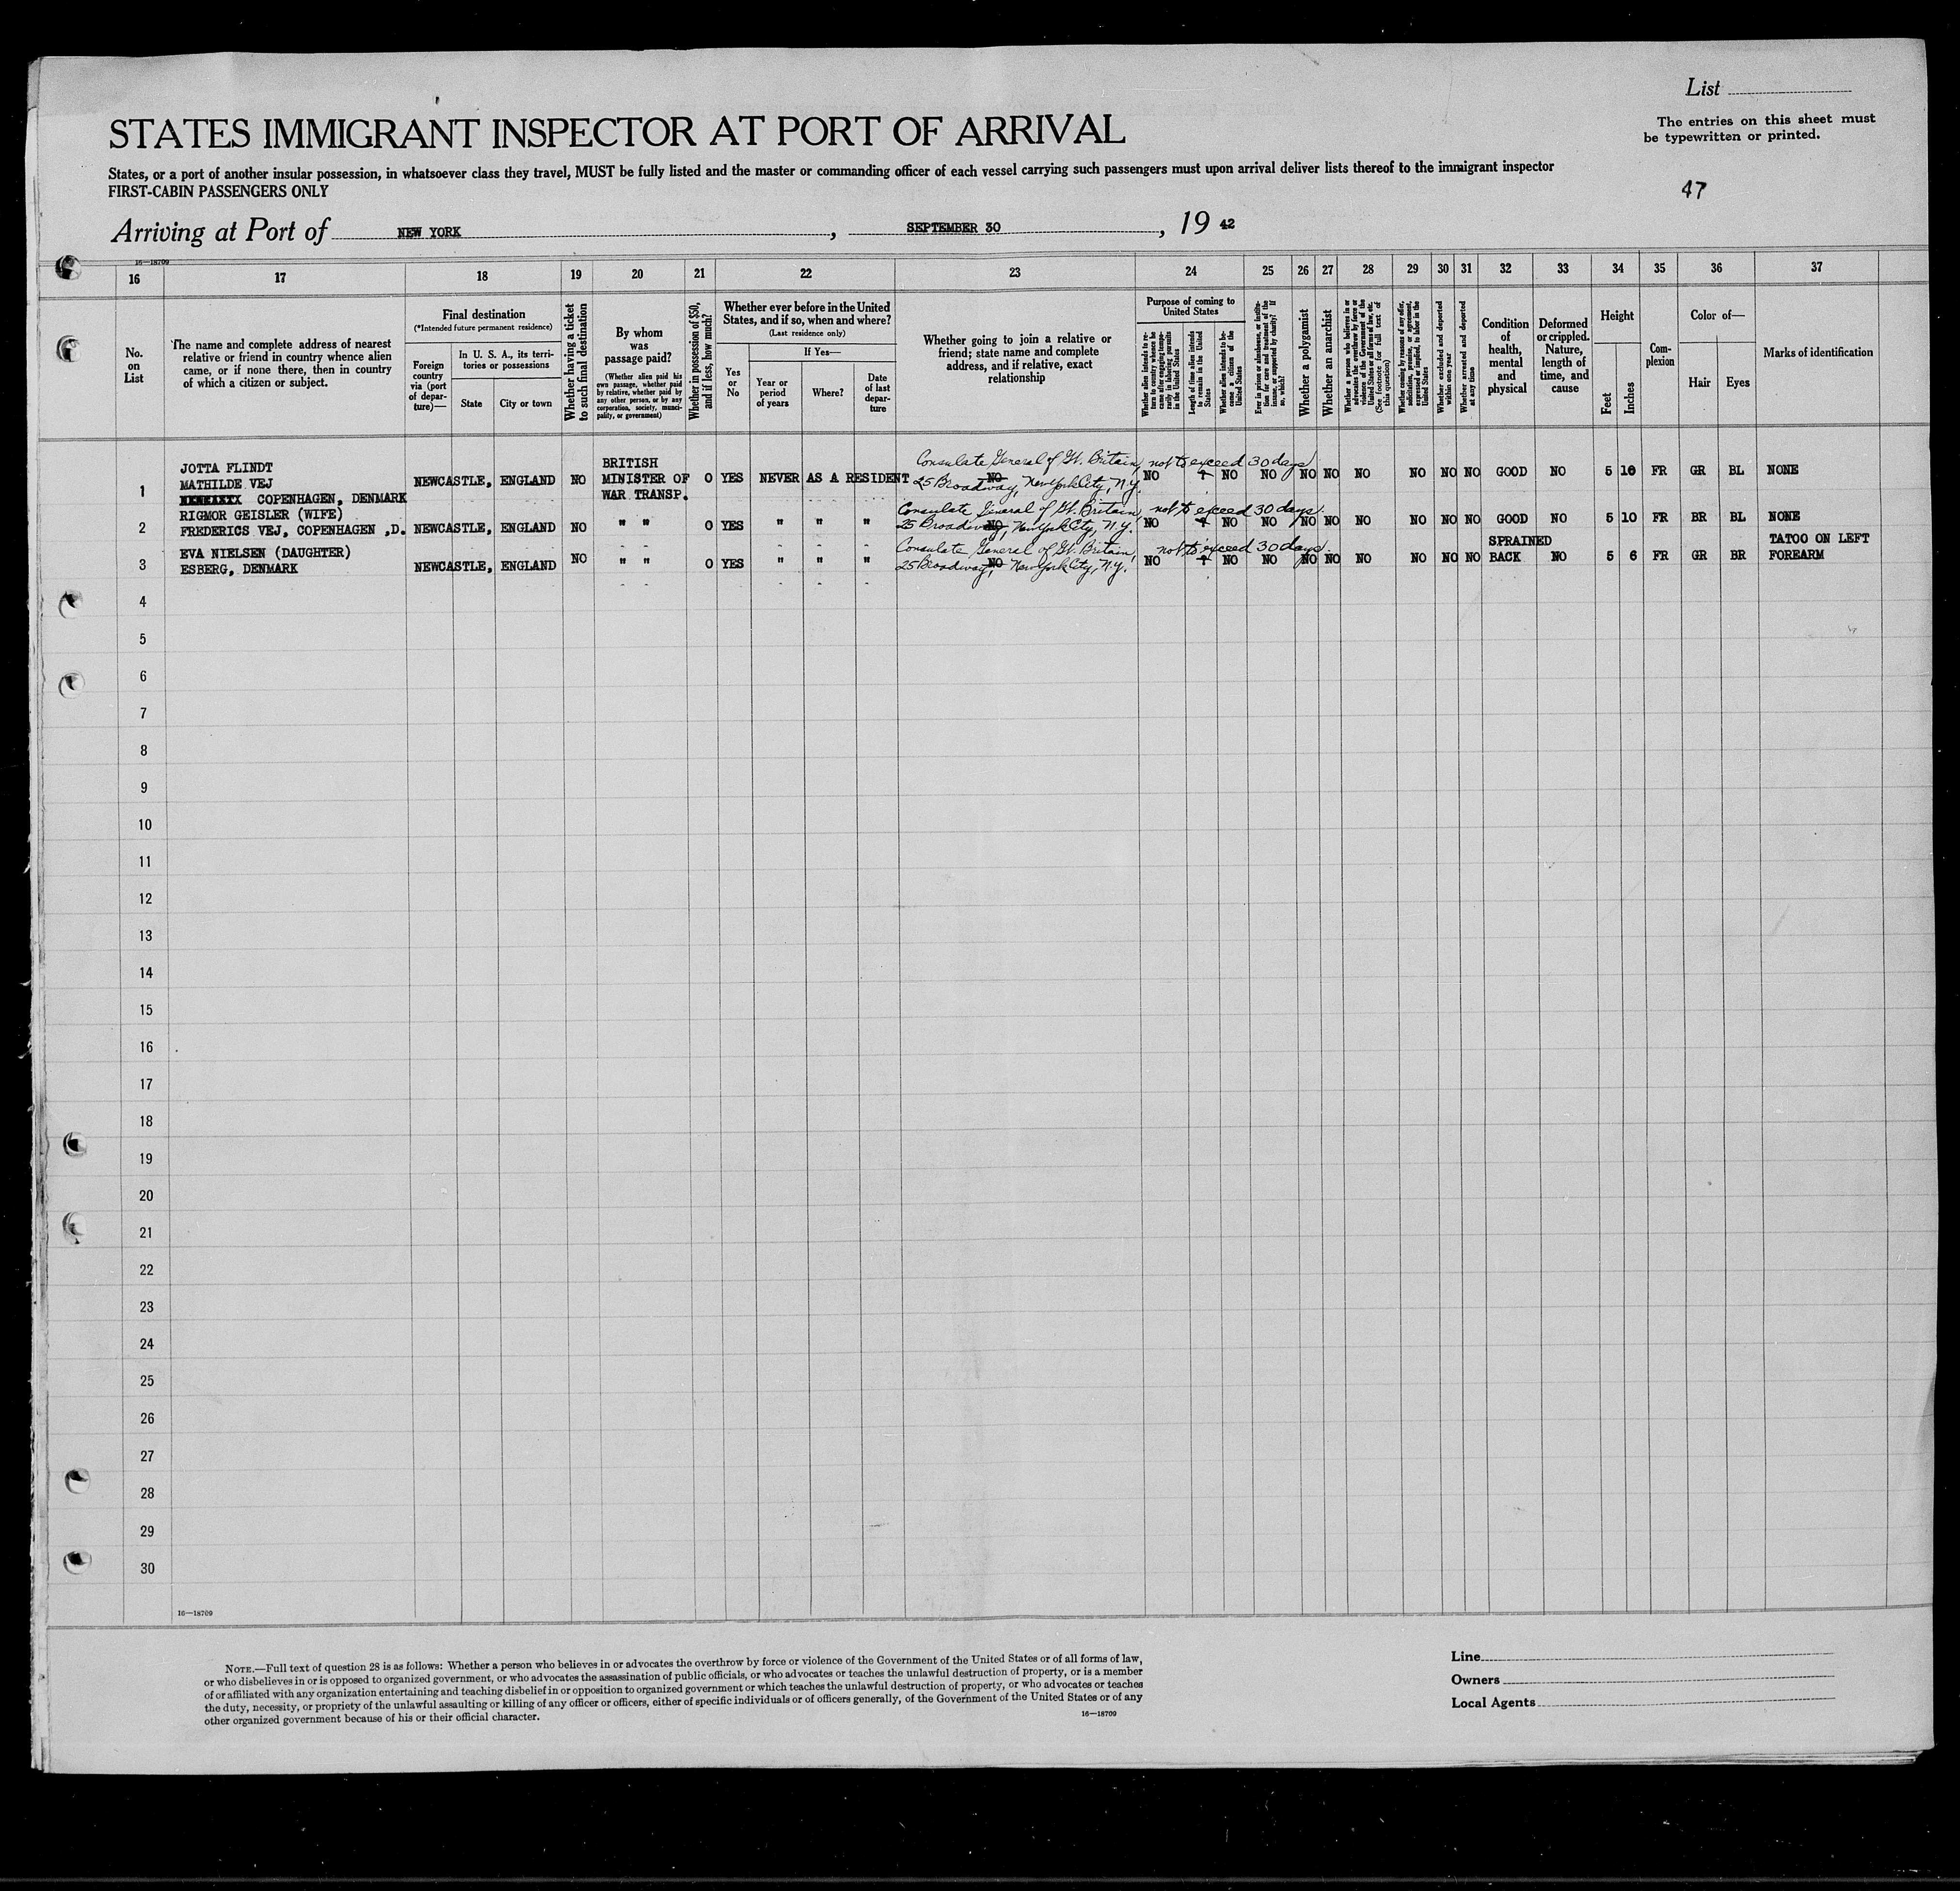 List
The entries on this sheet must
be typewritten or printed.
STATES IMMIGRANT INSPECTOR AT PORT OF ARRIVAL
States, or a port of another insular possession, in whatsoever class they travel, MUST be fully listed and the master or commanding officer of each vessel carrying such passengers must upon arrival deliver lists thereof to the immigrant inspector
FIRST-CABIN PASSENGERS ONLY
47
Arriving at Port of NEW YORK, SEPTEMBER 30, 19 42
16—18709
16 17 18 19 20 21 22 23 24 25 26 27 28 29 30 31 32 33 34 35 36 37
No.
on
List
The name and complete address of nearest
relative or friend in country whence alien
came, or if none there, then in country
of which a citizen or subject.
Final destination
(*Intended future permanent residence)
Foreign
country
via (port
of depar-
ture)—
In U. S. A., its terri-
tories or possessions
State
City or town
Whether having a ticket
to such final destination
By whom
was
passage paid?
(Whether alien paid his
own passage, whether paid
by relative, whether paid by
any other person, or by any
corporation, society, munici-
pality, or government)
Whether in possession of $50,
and if less, how much?
Whether ever before in the United
States, and if so, when and where?
(Last residence only)
Yes
or
No
If Yes—
Year or
period
of years
Where?
Date
of last
depar-
ture
Whether going to join a relative or
friend; state name and complete
address, and if relative, exact
relationship
Purpose of coming to
United States
Whether alien intends to re-
turn to country whence he
came after engaging tempo-
rarily in laboring pursuits
in the United States
Length of time alien intends
to remain in the United
States
Whether alien intends to be-
come a citizen of the
United States
Ever in prison or almshouse, or institu-
tion for care and treatment of the
insane, or supported by charity? If
so, which?
Whether a polygamist
Whether an anarchist
Whether a person who believes in or
advocates the overthrow by force or
violence of the Government of the
United States or all forms of law, etc.
(See footnote for full text of
this question)
Whether coming by reason of any offer,
solicitation, promise, or agreement,
expressed or implied, to labor in the
United States
Whether excluded and deported
within one year
Whether arrested and deported
at any time
Condition
of
health,
mental
and
physical
Deformed
or crippled.
Nature,
length of
time, and
cause
Height
Feet
Inches
Com-
plexion
Color of—
Hair
Eyes
Marks of identification
JOTTA FLINDT BRITISH Consulate General of Gt. Britain, not to exceed 30 days
MATHILDE VEJ NEWCASTLE, ENGLAND NO MINISTER OF 0 YES NEVER AS A RESIDENT NO 25 Broadway, New York City, N.Y. NO ? NO NO NO NO NO NO NO NO GOOD NO 5 10 FR GR BL NONE
1 COPENHAGEN, DENMARK WAR TRANSP.
RIGMOR GEISLER (WIFE) Consulate General of Gt. Britain, not to exceed 30 days.
2 FREDERICS VEJ, COPENHAGEN ,D. NEWCASTLE, ENGLAND NO " " 0 YES " " " 25 Broadway, NO New York City, N.Y. NO ? NO NO NO NO NO NO NO NO GOOD NO 5 10 FR BR BL NONE
EVA NIELSEN (DAUGHTER) Consulate General of Gt. Britain, not to exceed 30 days. SPRAINED TATOO ON LEFT
3 ESBERG, DENMARK NEWCASTLE, ENGLAND NO " " 0 YES " " " 25 Broadway, NO New York City, N.Y. NO ? NO NO NO NO NO NO NO NO BACK NO 5 6 FR GR BR FOREARM
4
5
6
7
8
9
10
11
12
13
14
15
16
17
18
19
20
21
22
23
24
25
26
27
28
29
30
16—18709
NOTE.—Full text of question 28 is as follows: Whether a person who believes in or advocates the overthrow by force or violence of the Government of the United States or of all forms of law,
or who disbelieves in or is opposed to organized government, or who advocates the assassination of public officials, or who advocates or teaches the unlawful destruction of property, or is a member
of or affiliated with any organization entertaining and teaching disbelief in or opposition to organized government or which teaches the unlawful destruction of property, or who advocates or teaches
the duty, necessity, or propriety of the unlawful assaulting or killing of any officer or officers, either of specific individuals or of officers generally, of the Government of the United States or of any
other organized government because of his or their official character.
16—18709
Line
Owners
Local Agents